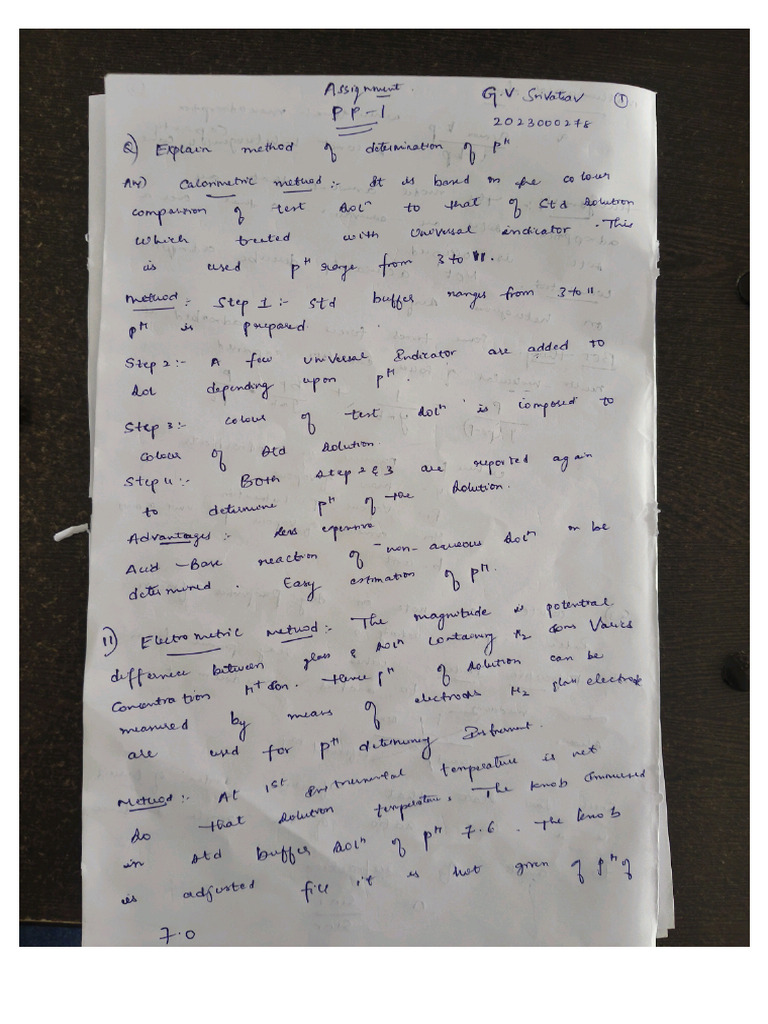 Assignment.
G.V Srivatsav ①
PP-1
2023000278
Q) Explain method of determination of pH
Ans) Calorimetric method:- It is based on the colour
comparision of test soln to that of Std solution
which treated with universal indicator. This
is used pH range from 3 to 11.
Method:- Step 1:- Std buffer ranges from 3 to 11
pH is prepared.
Step 2:- A few Universal Indicator are added to
sol depending upon pH.
Step 3:- colour of test soln is compared to
colour of Std solution.
Step 4:- Both step 2 & 3 are reported again
to determine pH of the solution.
Advantages:- Less expensive
Acid-Base reaction of non-aqueous soln in be
determined. Easy estimation of pH.
11) Electrometric method:- The magnitude is potential
difference between glass & soln containing H2 ions Varies
Concentration H+ Ion. Hence pH of solution can be
measured by means of electrodes H2 glass electrode
are used for pH determining Instrument.
Method:- At 1st Instrumental temperature is set
so that solution temperature. The knob immersed
in std buffer soln of pH 7.6. The knob
is adjusted it is not given of pH of
7.0